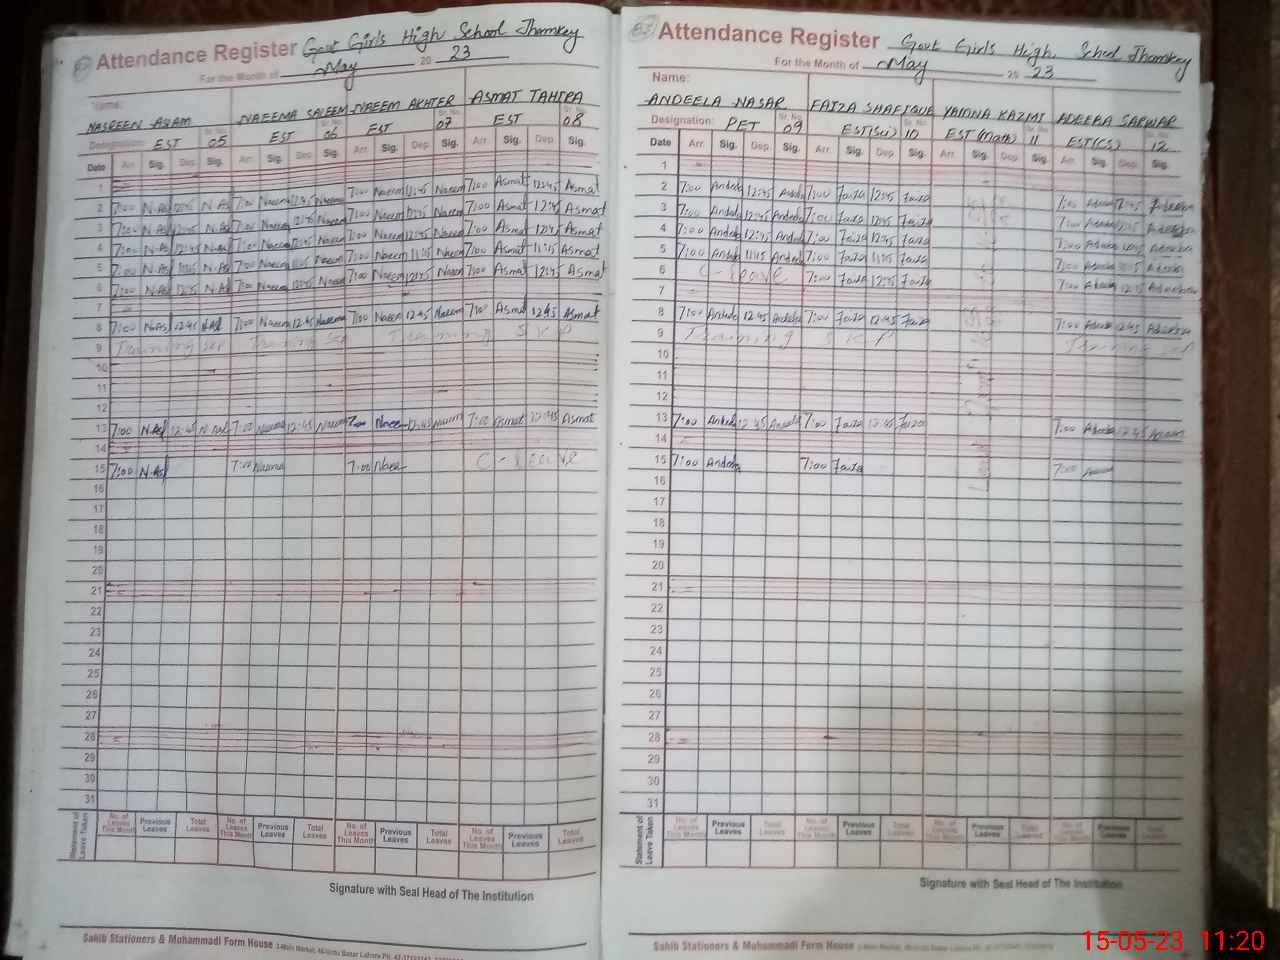 Attendance Register Govt Girls High School Jhamkey
For the Month of May 20 23
Name:
NASREEN ASLAM NAEEMA SALEEM NAEEM AKHTER ASMAT TAHIRA
Designation: EST Sr. No. 05 EST Sr. No. 06 EST Sr. No. 07 EST Sr. No. 08
Date Arr. Sig. Dep. Sig. Arr. Sig. Dep. Sig. Arr. Sig. Dep. Sig. Arr. Sig. Dep. Sig.
1
2 7:00 N.As 12:45 N.As 7:00 Naeem 12:45 Naeem 7:00 Naeem 12:45 Naeem 7:00 Asmat 12:45 Asmat
3 7:00 N.As 12:45 N.As 7:00 Naeem 12:45 Naeem 7:00 Naeem 12:45 Naeem 7:00 Asmat 12:45 Asmat
4 7:00 N.As 12:45 N.As 7:00 Naeem 12:45 Naeem 7:00 Naeem 12:45 Naeem 7:00 Asmat 12:45 Asmat
5 7:00 N.As 11:15 N.As 7:00 Naeem 11:15 Naeem 7:00 Naeem 11:15 Naeem 7:00 Asmat 11:15 Asmat
6 7:00 N.As 12:45 N.As 7:00 Naeem 12:45 Naeem 7:00 Naeem 12:45 Naeem 7:00 Asmat 12:45 Asmat
7
8 7:00 N.As 12:45 N.As 7:00 Naeem 12:45 Naeem 7:00 Naeem 12:45 Naeem 7:00 Asmat 12:45 Asmat
9 Training Training Training S K P
10
11
12
13 7:00 N.As 12:45 N.As 7:00 Naeem 12:45 Naeem 7:00 Naeem 12:45 Naeem 7:00 Asmat 12:45 Asmat
14
15 7:00 N.As 7:00 Naeema 7:00 Naeem C-leave
16
17
18
19
20
21
22
23
24
25
26
27
28
29
30
31
Statement of Leave Taken
No. of Leaves This Month Previous Leaves Total Leaves No. of Leaves This Month Previous Leaves Total Leaves No. of Leaves This Month Previous Leaves Total Leaves No. of Leaves This Month Previous Leaves Total Leaves
Signature with Seal Head of The Institution
Sahib Stationers & Muhammadi Form House
Attendance Register Govt Girls High School Jhamkey
For the Month of May 20 23
Name:
ANDEELA NASAR FAIZA SHAFIQUE YAMNA KAZMI ADEEBA SARWAR
Designation: PET Sr. No. 09 EST(Sci) Sr. No. 10 EST (Math) Sr. No. 11 EST(CS) 12
Date Arr. Sig. Dep. Sig. Arr. Sig. Dep. Sig. Arr. Sig. Dep. Sig. Arr. Sig. Dep. Sig.
1
2 7:00 Andeela 12:45 Andeela 7:00 Faiza 12:45 Faiza 7:00 Adeeba 12:45 Adeeba
3 7:00 Andeela 12:45 Andeela 7:00 Faiza 12:45 Faiza 7:00 Adeeba 12:45 Adeeba
4 7:00 Andeela 12:45 Andeela 7:00 Faiza 12:45 Faiza 7:00 Adeeba 12:45 Adeeba
5 7:00 Andeela 11:15 Andeela 7:00 Faiza 11:15 Faiza 7:00 Adeeba 11:15 Adeeba
6 C-leave 7:00 Faiza 12:45 Faiza 7:00 Adeeba 12:45 Adeeba
7
8 7:00 Andeela 12:45 Andeela 7:00 Faiza 12:45 Faiza 7:00 Adeeba 12:45 Adeeba
9 Training S K P Training SKP
10
11
12
13 7:00 Andeela 12:45 Andeela 7:00 Faiza 12:45 Faiza 7:00 Adeeba 12:45 Adeeba
14
15 7:00 Andeela 7:00 Faiza 7:00
16
17
18
19
20
21
22
23
24
25
26
27
28
29
30
31
Statement of Leave Taken
No. of Leaves This Month Previous Leaves Total Leaves No. of Leaves This Month Previous Leaves Total Leaves No. of Leaves This Month Previous Leaves Total Leaves No. of Leaves This Month Previous Leaves Total Leaves
Signature with Seal Head of The Institution
Sahib Stationers & Muhammadi Form House
15-05-23 11:20